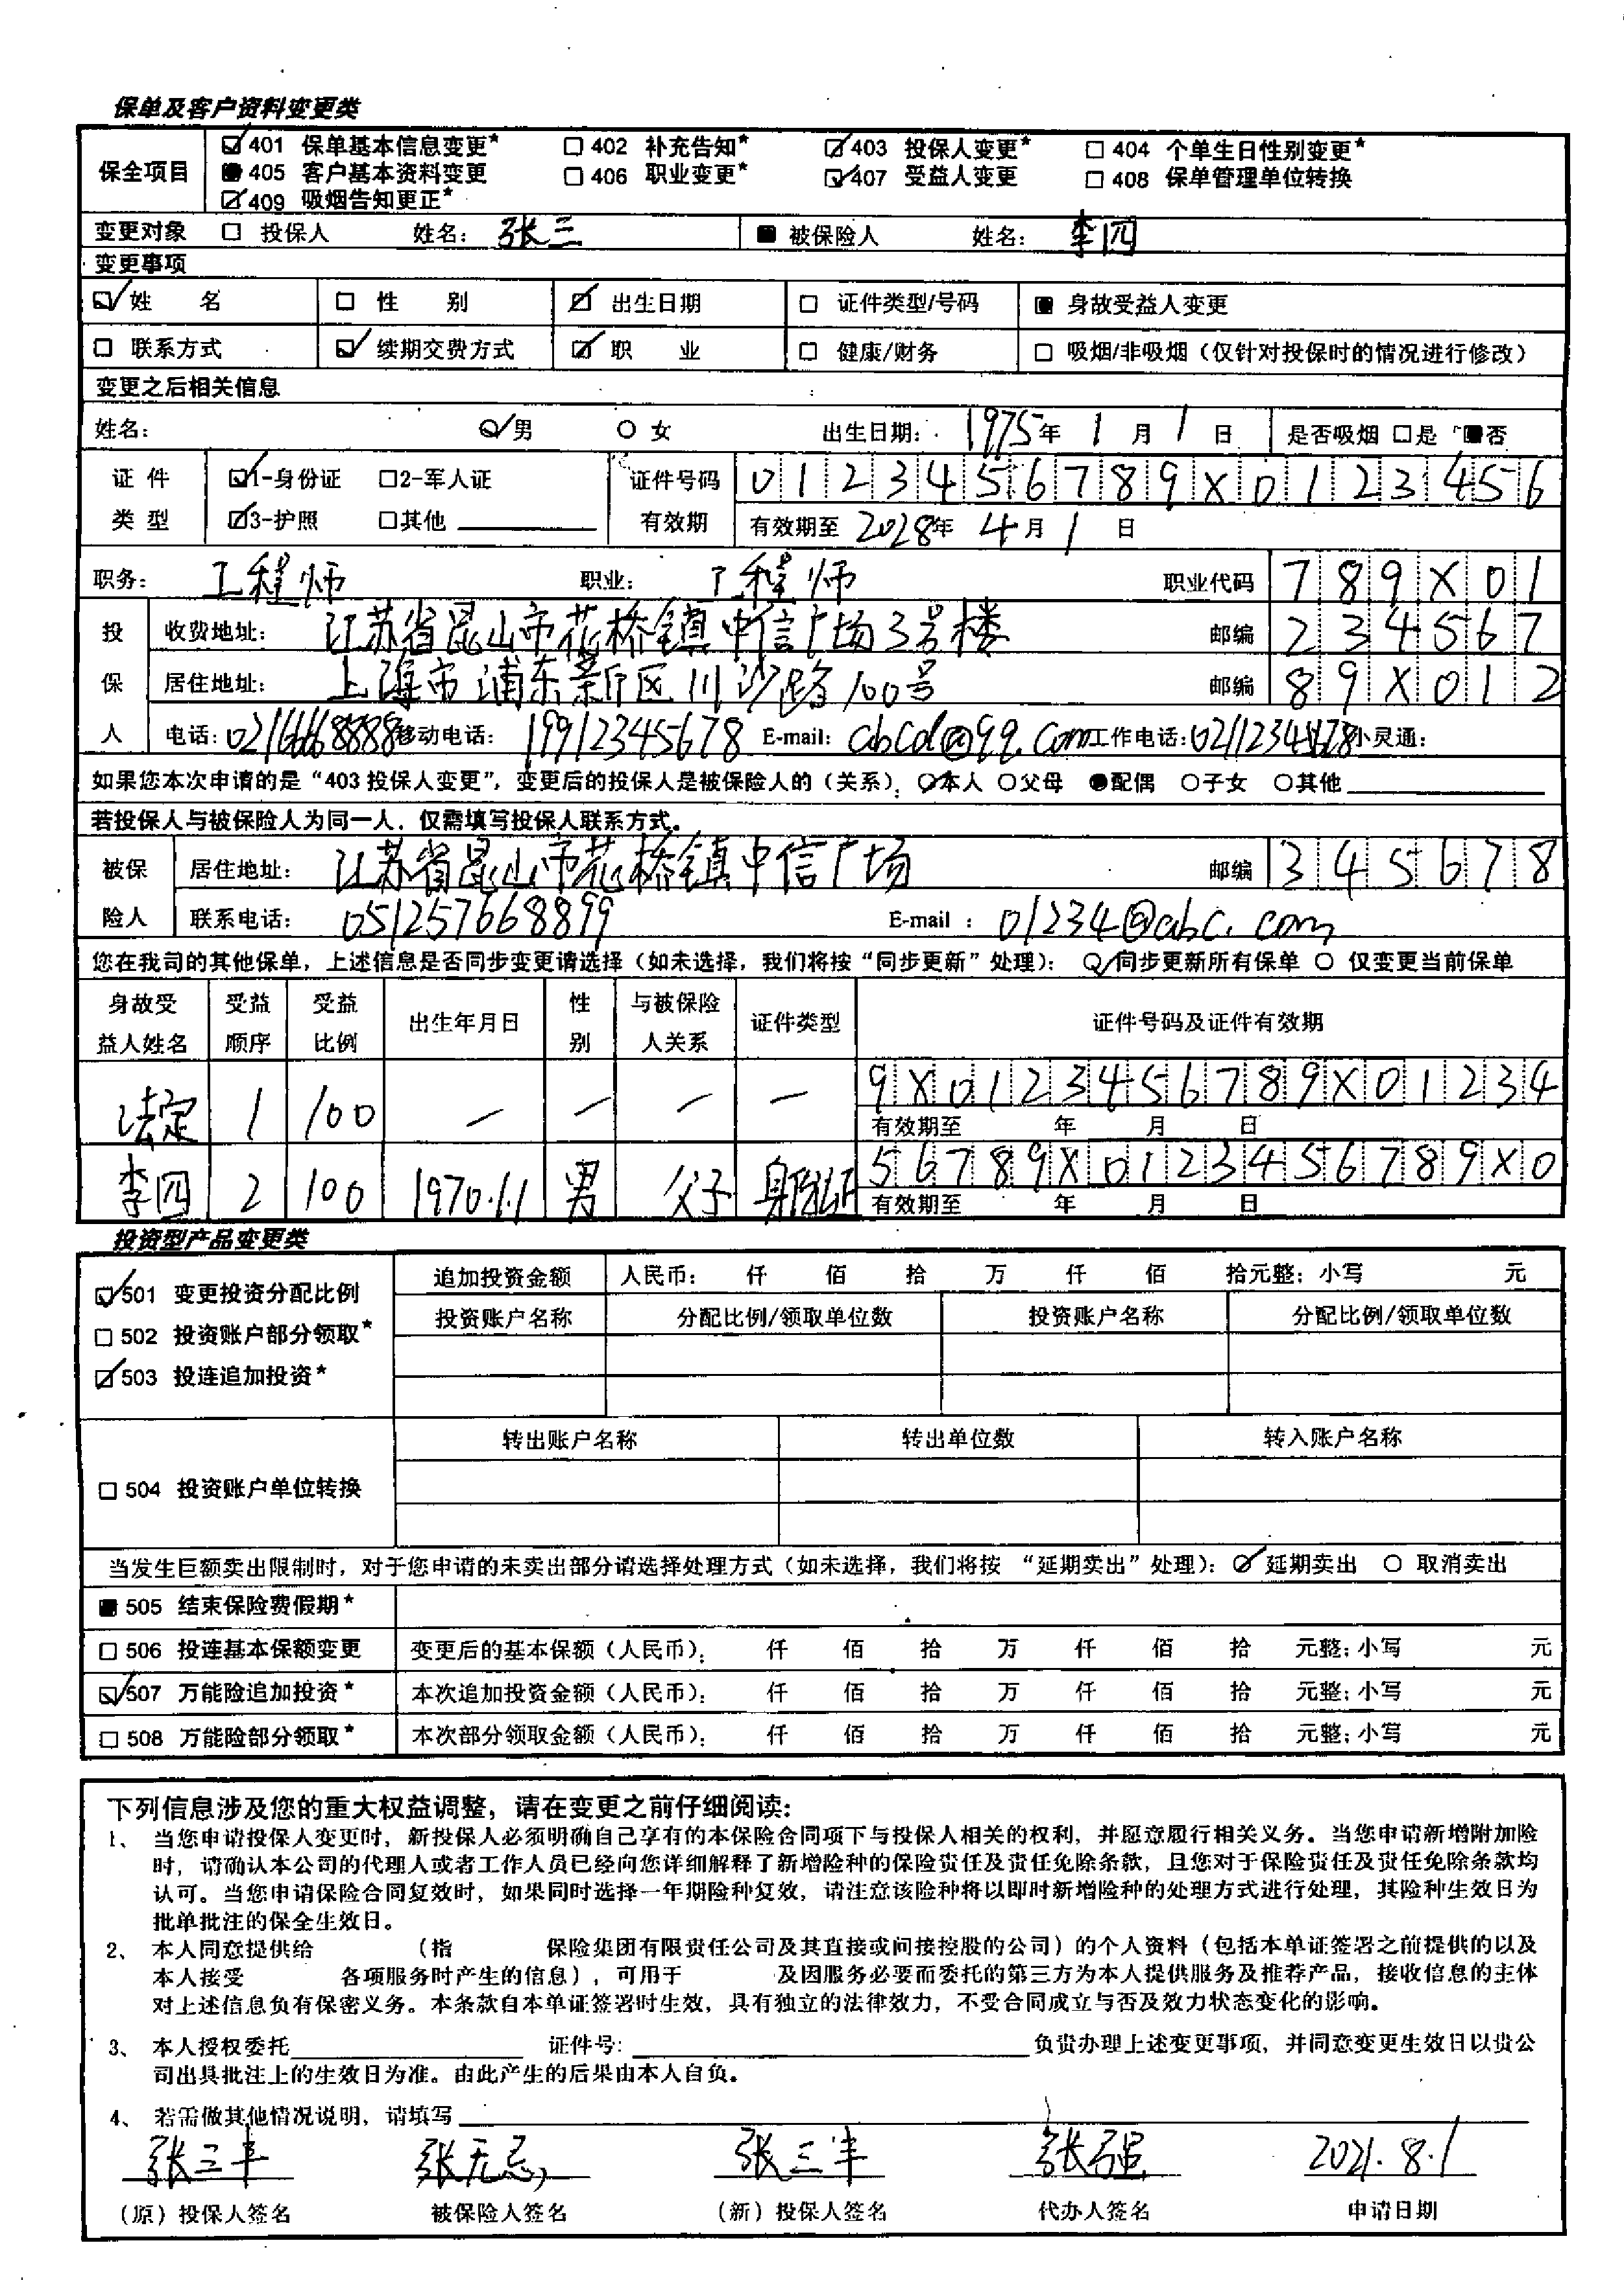 保单及客户资料变更类
保全项目 ☑401 保单基本信息变更* ☐402 补充告知* ☑403 投保人变更* ☐404 个单生日性别变更*
■405 客户基本资料变更 ☐406 职业变更* ☑407 受益人变更 ☐408 保单管理单位转换
☑409 吸烟告知更正*
变更对象 ☐ 投保人 姓名: 张三 ■ 被保险人 姓名: 李四
变更事项
☑姓 名 ☐ 性 别 ☑ 出生日期 ☐ 证件类型/号码 ■ 身故受益人变更
☐ 联系方式 ☑ 续期交费方式 ☑ 职 业 ☐ 健康/财务 ☐ 吸烟/非吸烟（仅针对投保时的情况进行修改）
变更之后相关信息
姓名: ☑男 ○ 女 出生日期: 1975年 1 月 1 日 是否吸烟 ☐是 ■否
证件 ☑1-身份证 ☐2-军人证 证件号码 0123456789X0123456
类型 ☑3-护照 ☐其他 有效期 有效期至 2028年 4月 1 日
职务: 工程师 职业: 工程师 职业代码 789X01
投 收费地址: 江苏省昆山市花桥镇中信广场3号楼 邮编 234567
保 居住地址: 上海市浦东新区川沙路100号 邮编 89X012
人 电话: 02166668888 移动电话: 19912345678 E-mail: abcd@qq.com 工作电话: 02112345678 小灵通:
如果您本次申请的是“403 投保人变更”，变更后的投保人是被保险人的（关系）: ☑本人 ○父母 ●配偶 ○子女 ○其他
若投保人与被保险人为同一人，仅需填写投保人联系方式。
被保 居住地址: 江苏省昆山市花桥镇中信广场 邮编 345678
险人 联系电话: 051257668899 E-mail : 01234@abc.com
您在我司的其他保单，上述信息是否同步变更请选择（如未选择，我们将按“同步更新”处理）: ☑同步更新所有保单 ○ 仅变更当前保单
身故受益人姓名 受益顺序 受益比例 出生年月日 性别 与被保险人关系 证件类型 证件号码及证件有效期
法定 1 100 — — — — 9X0123456789X01234
有效期至 年 月 日
李四 2 100 1970.1.1 男 父子 身份证 56789X0123456789X0
有效期至 年 月 日
投资型产品变更类
☑501 变更投资分配比例 追加投资金额 人民币: 仟 佰 拾 万 仟 佰 拾元整; 小写 元
☐ 502 投资账户部分领取* 投资账户名称 分配比例/领取单位数 投资账户名称 分配比例/领取单位数
☑503 投连追加投资*
转出账户名称 转出单位数 转入账户名称
☐ 504 投资账户单位转换
当发生巨额卖出限制时，对于您申请的未卖出部分请选择处理方式（如未选择，我们将按 “延期卖出”处理）: ☑ 延期卖出 ○ 取消卖出
■ 505 结束保险费假期*
☐ 506 投连基本保额变更 变更后的基本保额（人民币）: 仟 佰 拾 万 仟 佰 拾 元整; 小写 元
☑507 万能险追加投资* 本次追加投资金额（人民币）: 仟 佰 拾 万 仟 佰 拾 元整; 小写 元
☐ 508 万能险部分领取* 本次部分领取金额（人民币）: 仟 佰 拾 万 仟 佰 拾 元整; 小写 元
下列信息涉及您的重大权益调整，请在变更之前仔细阅读:
1、 当您申请投保人变更时，新投保人必须明确自己享有的本保险合同项下与投保人相关的权利，并愿意履行相关义务。当您申请新增附加险
时，请确认本公司的代理人或者工作人员已经向您详细解释了新增险种的保险责任及责任免除条款，且您对于保险责任及责任免除条款均
认可。当您申请保险合同复效时，如果同时选择一年期险种复效，请注意该险种将以即时新增险种的处理方式进行处理，其险种生效日为
批单批注的保全生效日。
2、 本人同意提供给 （指 保险集团有限责任公司及其直接或间接控股的公司）的个人资料（包括本单证签署之前提供的以及
本人接受 各项服务时产生的信息），可用于 及因服务必要而委托的第三方为本人提供服务及推荐产品，接收信息的主体
对上述信息负有保密义务。本条款自本单证签署时生效，具有独立的法律效力，不受合同成立与否及效力状态变化的影响。
3、 本人授权委托 证件号: 负责办理上述变更事项，并同意变更生效日以贵公
司出具批注上的生效日为准。由此产生的后果由本人自负。
4、 若需做其他情况说明，请填写
张三丰 张无忌 张三丰 张强 2021.8.1
（原）投保人签名 被保险人签名 （新）投保人签名 代办人签名 申请日期